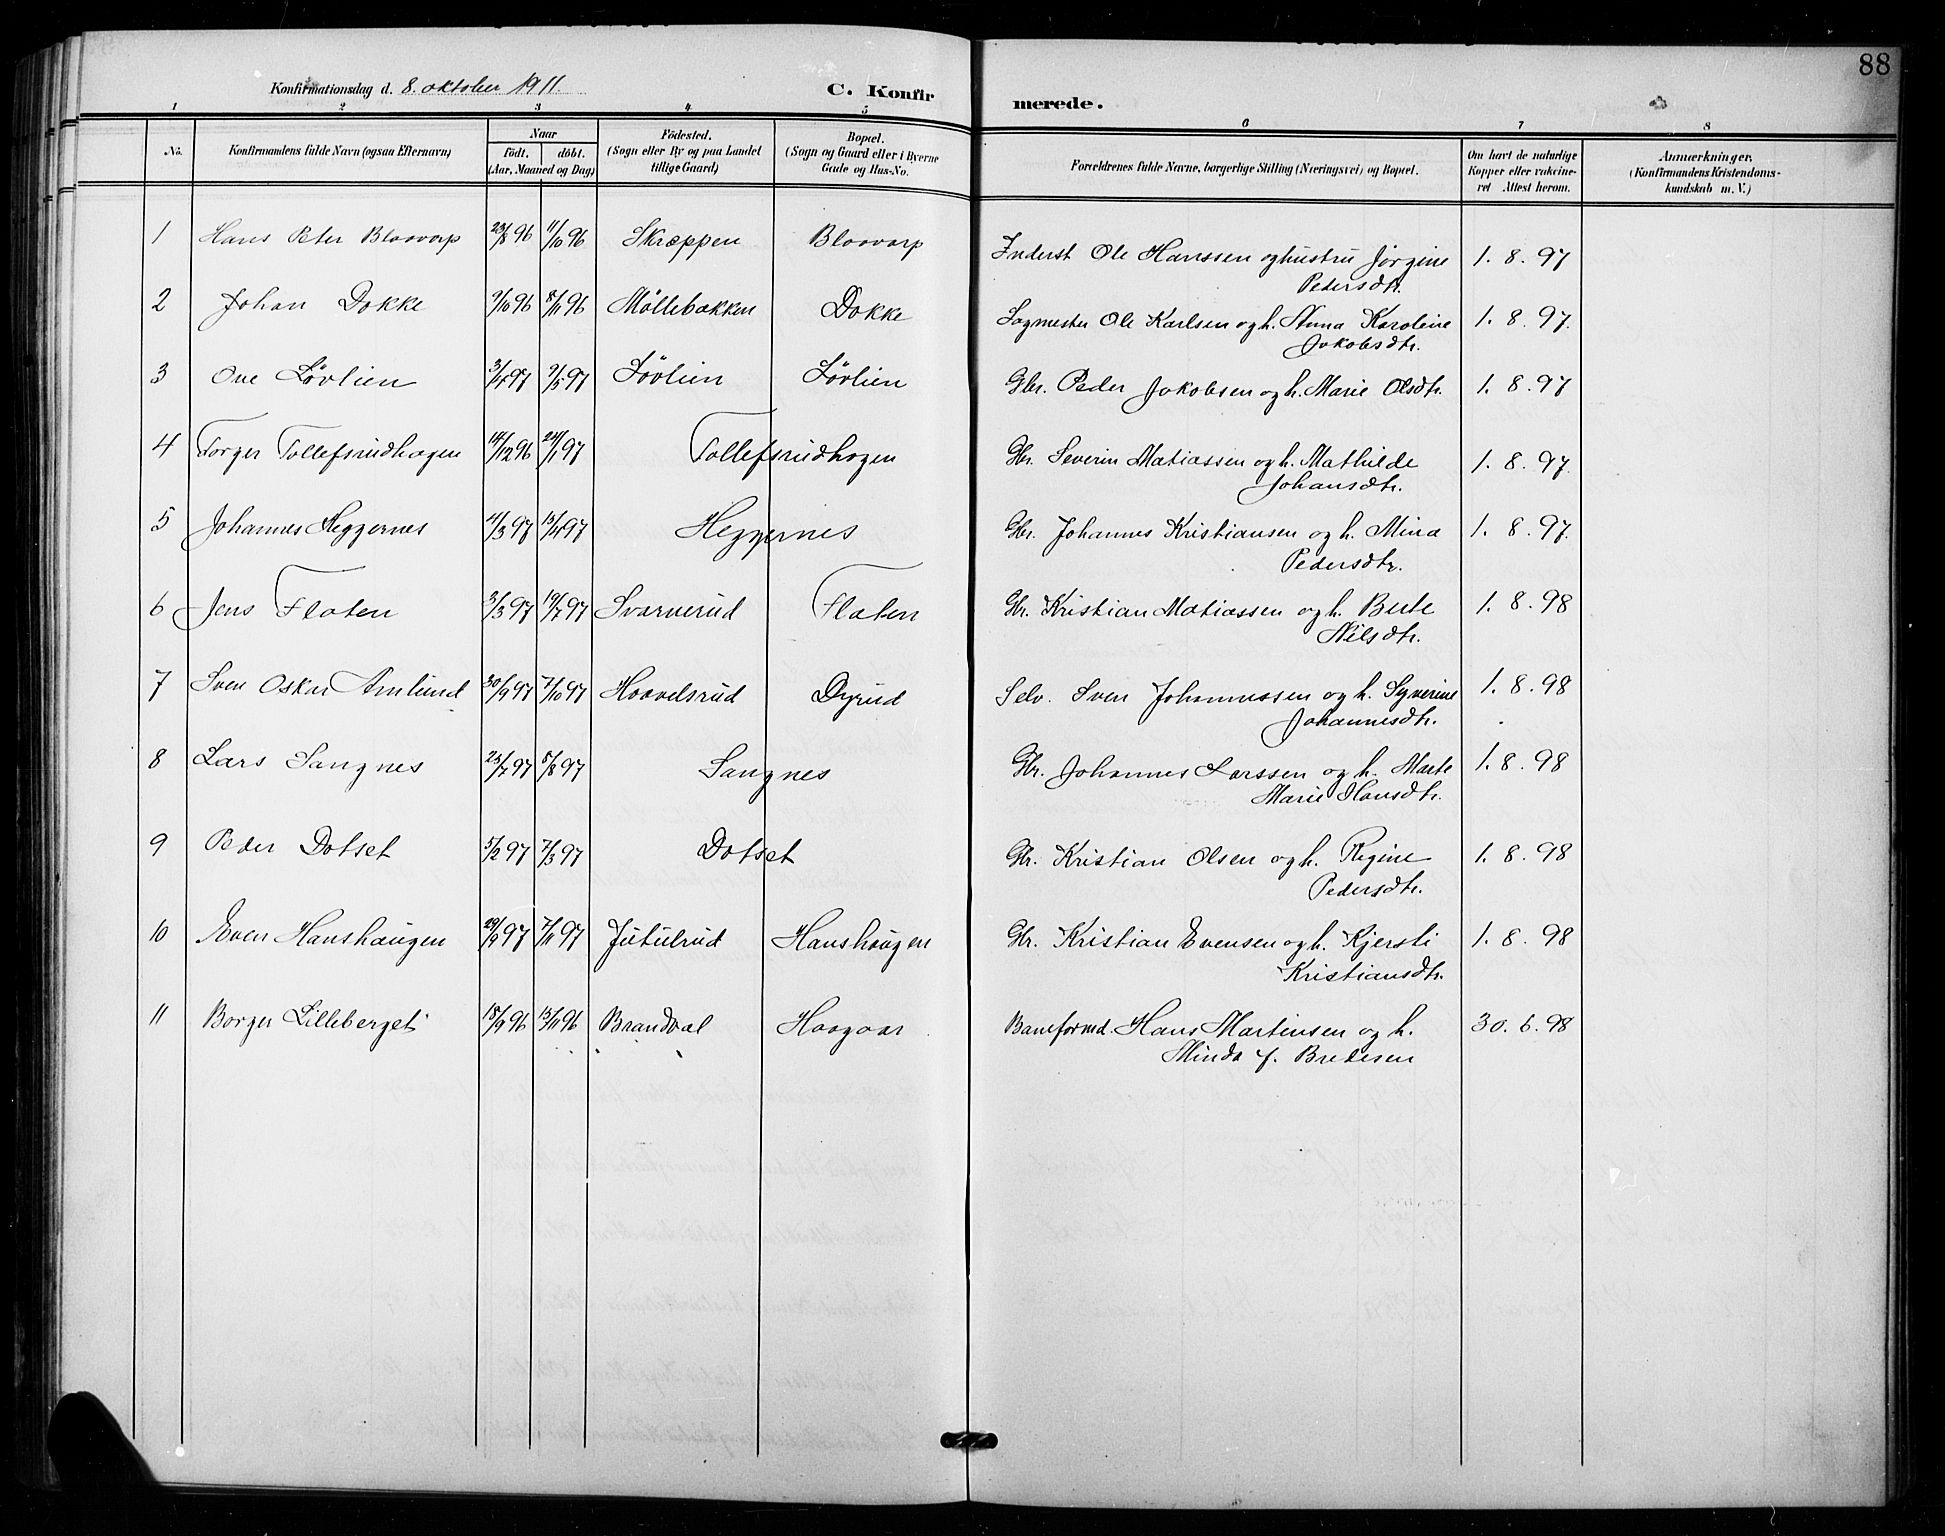 88
Konfirmationsdag d. 8. oktober 1911.
C. Konfirmerede.
1 2 3 4 5 6 7 8
No. Konfirmandens fulde Navn (ogsaa Efternavn) Naar født. døbt. (Aar, Maaned og Dag) Fødested. (Sogn eller By og paa Landet tillige Gaard) Bopæl. (Sogn og Gaard eller i Byerne Gade og Hus-No. Forældrenes fulde Navne, borgerlige Stilling (Næringsvei) og Bopæl. Om havt de naturlige Kopper eller vakcineret Attest herom. Anmærkninger. (Konfirmandens Kristendomskundskab m. V.)
1 Hans Peter Blaavarp 23/8 96 11/10 96 Skræppen Blaavarp Inderst Ole Hanssen og hustru Jørgine 1. 8. 97
Pedersdtr.
2 Johan Dokke 9/10 96 8/11 96 Møllebakken Dokke Sagmester Ole Karlsen og h. Anna Karoline 1. 8. 97.
Jakobsdtr.
3 Ove Løvlien 3/4 97 9/5 97 Løvlien Løvlien Gbr. Peder Jakobsen og h. Marie Olsdtr. 1. 8. 97
4 Torger Tollefsrudhagen 14/12 96 24/1 97 Tollefsrudhagen Gbr. Severin Matiassen og h. Mathilde 1. 8. 97.
Johansdtr.
5 Johannes Heggernes 4/3 97 13/4 97 Heggernes Gbr. Johannes Kristiansen og h. Mina 1. 8. 97.
Pedersdtr.
6 Jens Flaten 3/3 97 19/7 97 Svarverud Flaten Gbr. Kristian Matiassen og h. Berte 1. 8. 98
Nilsdtr.
7 Sven Oskar Amlund 30/9 97 7/10 97 Haavelsrud Dyrud Selv. Sven Johannessen og h. Syverine 1. 8. 98
Johannesdtr.
8 Lars Sangnes 23/7 97 8/8 97 Sangnes Gbr. Johannes Larssen og h. Marte 1. 8. 98
Marie Hansdtr.
9 Peder Dotset 5/2 97 7/3 97 Dotset Gbr. Kristian Olsen og h. Regine 1. 8. 98
Pedersdtr.
10 Even Hanshaugen 29/9 97 7/11 97 Jutulrud Hanshaugen Gbr. Kristian Evensen og h. Kjersti 1. 8. 98
Kristiansdtr.
11 Borger Lilleberget 18/9 96 13/11 96 Brandval Haagaar Baneformd. Hans Martinsen og h. 30. 6. 98
Minda f. Bredesen